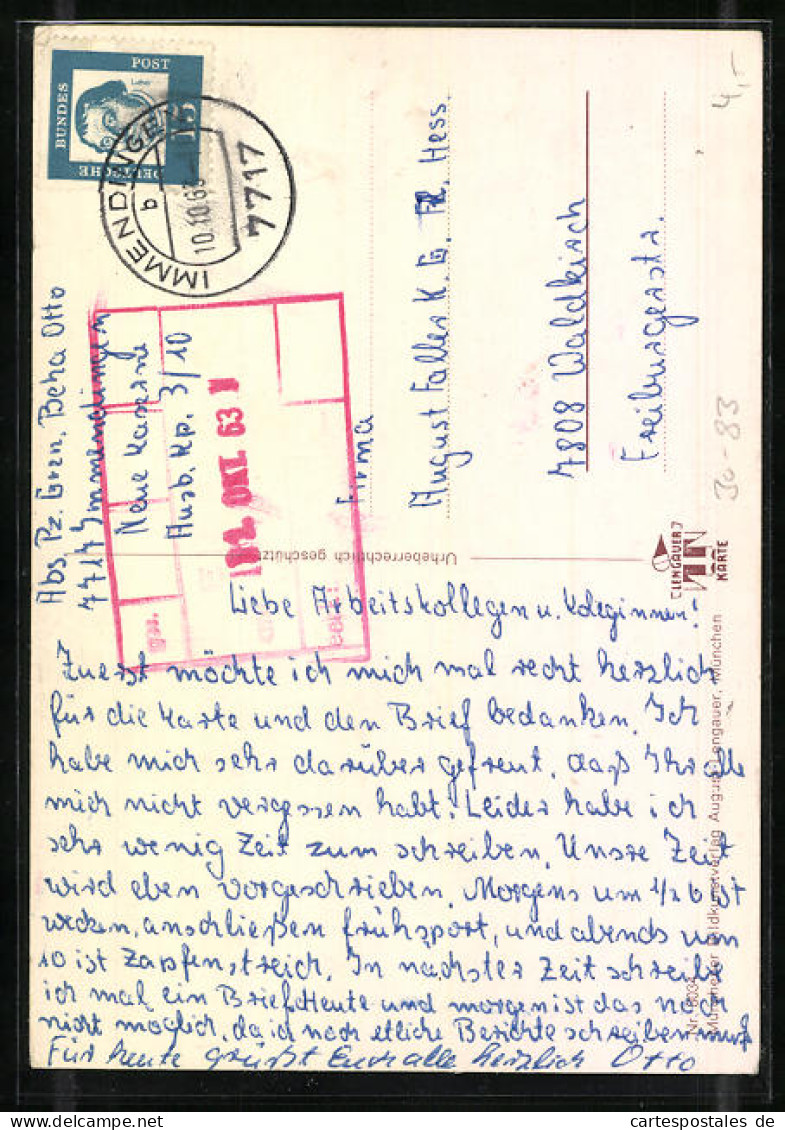 DEUTSCHE
BUNDES
POST
Luther
15
IMMENDINGEN
b
10.10.63
7717
4,-
30-83
Abs. Pz. Gren. Beha Otto
7717 Immendingen
Neue Kaserne
Ausb. Kp. 3/10
12. OKT. 63
Firma
August Faller K.G. Fr. Hess.
7808 Waldkirch
Freiburgerstr.
Urheberrechtlich geschützt
LENGAUER
KARTE
Münchener Bildkunstverlag August Lengauer, München
Liebe Arbeitskollegen u. Koleginnen!
Zuerst möchte ich mich mal recht herzlich
für die Karte und den Brief bedanken. Ich
habe mich sehr darüber gefreut, daß Ihr alle
mich nicht vergessen habt. Leider habe ich
sehr wenig Zeit zum schreiben. Unsre Zeit
wird eben vorgeschrieben. Morgens um 1/2 6 ist
wecken, anschließen frühsport, und abends um
10 ist Zapfenstreich. In nächster Zeit schreibe
ich mal ein Brief. Heute und morgen ist das noch
nicht möglich, da ich noch etliche Berichte schreiben muß
Für heute grüßt Euch alle herzlich Otto
cartespostales de